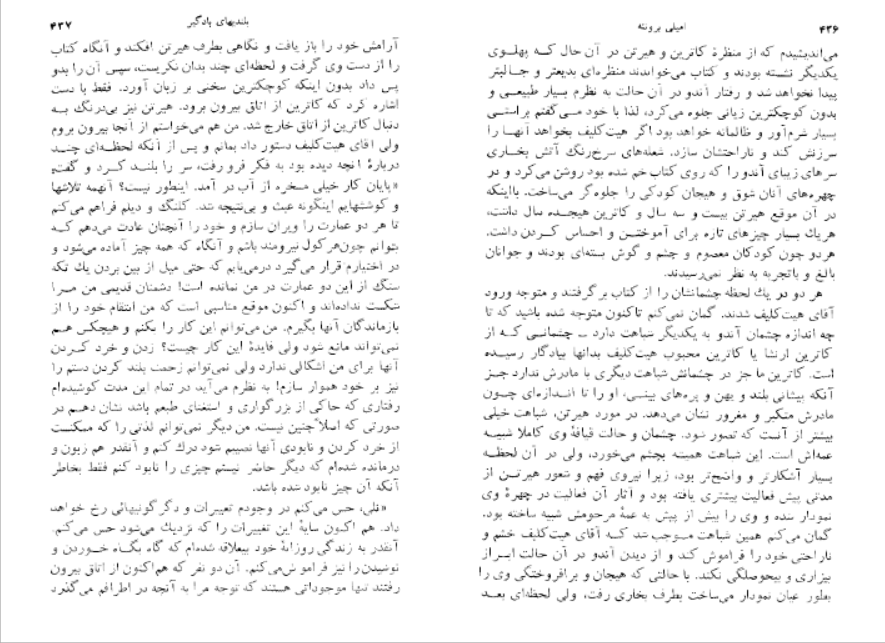 ۴۳۶
امیلی برونته
می‌اندیشیدم که از منظرهٔ کاترین و هیرتن در آن حال که پهلوی
یکدیگر نشسته بودند و کتاب می‌خواندند منظره‌ای بدیعتر و جالبتر
پیدا نخواهد شد و رفتار آندو در آن حالت به نظرم بسیار طبیعی و
بدون کوچکترین زیانی جلوه می‌کرد، لذا با خود می‌گفتم براستی
بسیار شرم‌آور و ظالمانه خواهد بود اگر هیت‌کلیف بخواهد آنها را
سرزنش کند و ناراحتشان سازد. شعله‌های سرخ‌رنگ آتش بخاری
سرهای زیبای آندو را که روی کتاب خم شده بود روشن می‌کرد و در
چهره‌های آنان شوق و هیجان کودکی را جلوه‌گر می‌ساخت. بااینکه
در آن موقع هیرتن بیست و سه سال و کاترین هیجده سال داشت،
هریك بسیار چیزهای تازه برای آموختن و احساس کردن داشت.
هردو چون کودکان معصوم و چشم و گوش بسته‌ای بودند و جوانان
بالغ و باتجربه به نظر نمی‌رسیدند.
هر دو در یك لحظه چشمانشان را از کتاب برگرفتند و متوجه ورود
آقای هیت‌کلیف شدند. گمان نمی‌کنم تاکنون متوجه شده باشید که تا
چه اندازه چشمان آندو به یکدیگر شباهت دارد ــ چشمانی که از
کاترین ارنشا یا کاترین محبوب هیت‌کلیف بدانها بیادگار رسیده
است. کاترین ما جز در چشمانش شباهت دیگری با مادرش ندارد جز
آنکه پیشانی بلند و پهن و پره‌های بینی، او را تا اندازه‌ای چون
مادرش متکبر و مغرور نشان می‌دهد. در مورد هیرتن، شباهت خیلی
بیشتر از آنست که تصور شود. چشمان و حالت قیافهٔ وی کاملا شبیه
عمه‌اش است. این شباهت همیشه بچشم می‌خورد، ولی در آن لحظه
بسیار آشکارتر و واضح‌تر بود، زیرا نیروی فهم و شعور هیرتن از
مدتی پیش فعالیت بیشتری یافته بود و آثار آن فعالیت در چهرهٔ وی
نمودار شده و وی را بیش از پیش به عمهٔ مرحومش شبیه ساخته بود.
گمان می‌کنم همین شباهت موجب شد که آقای هیت‌کلیف خشم و
ناراحتی خود را فراموش کند و از دیدن آندو در آن حالت ابراز
بیزاری و بیحوصلگی نکند. با حالتی که هیجان و برافروختگی وی را
بطور عیان نمودار می‌ساخت بطرف بخاری رفت، ولی لحظه‌ای بعد
بلندیهای بادگیر
۴۳۷
آرامش خود را باز یافت و نگاهی بطرف هیرتن افکند و آنگاه کتاب
را از دست وی گرفت و لحظه‌ای چند بدان نگریست، سپس آن را بدو
پس داد بدون اینکه کوچکترین سخنی بر زبان آورد. فقط با دست
اشاره کرد که کاترین از اتاق بیرون برود. هیرتن نیز بی‌درنگ به
دنبال کاترین از اتاق خارج شد. من هم می‌خواستم از آنجا بیرون بروم
ولی آقای هیت‌کلیف دستور داد بمانم و پس از آنکه لحظه‌ای چند
دربارهٔ آنچه دیده بود به فکر فرو رفت، سر را بلند کرد و گفت:
«پایان کار خیلی مسخره از آب در آمد. اینطور نیست؟ آنهمه تلاشها
و کوششهایم اینگونه عبث و بی‌نتیجه شد. کلنگ و دیلم فراهم می‌کنم
تا هر دو عمارت را ویران سازم و خود را آنچنان عادت می‌دهم که
بتوانم چون‌هرکول نیرومند باشم و آنگاه که همه چیز آماده می‌شود و
در اختیارم قرار می‌گیرد درمی‌یابم که حتی میل از بین بردن یك تکه
سنگ از این دو عمارت در من نمانده است! دشمنان قدیمی من مرا
شکست نداده‌اند و اکنون موقع مناسبی است که من انتقام خود را از
بازماندگان آنها بگیرم. من می‌توانم این کار را بکنم و هیچکس هم
نمی‌تواند مانع شود ولی فایدهٔ این کار چیست؟ زدن و خرد کردن
آنها برای من اشکالی ندارد ولی نمی‌توانم زحمت بلند کردن دستم را
نیز بر خود هموار سازم! به نظرم می‌آید در تمام این مدت کوشیده‌ام
رفتاری که حاکی از بزرگواری و استغنای طبعم باشد نشان دهم در
صورتی که اصلاً چنین نیست. من دیگر نمی‌توانم لذتی را که ممکنست
از خرد کردن و نابودی آنها نصیبم شود درك کنم و آنقدر هم زبون و
درمانده شده‌ام که دیگر حاضر نیستم چیزی را نابود کنم فقط بخاطر
آنکه آن چیز نابود شده باشد.
«نلی، حس می‌کنم در وجودم تغییرات و دگرگونیهائی رخ خواهد
داد. هم اکنون سایهٔ این تغییرات را که نزدیك می‌شود حس می‌کنم.
آنقدر به زندگی روزانهٔ خود بیعلاقه شده‌ام که گاه بگاه خوردن و
نوشیدن را نیز فراموش می‌کنم. آن دو نفر که هم‌اکنون از اتاق بیرون
رفتند تنها موجوداتی هستند که توجه مرا به آنچه در اطرافم می‌گذرد